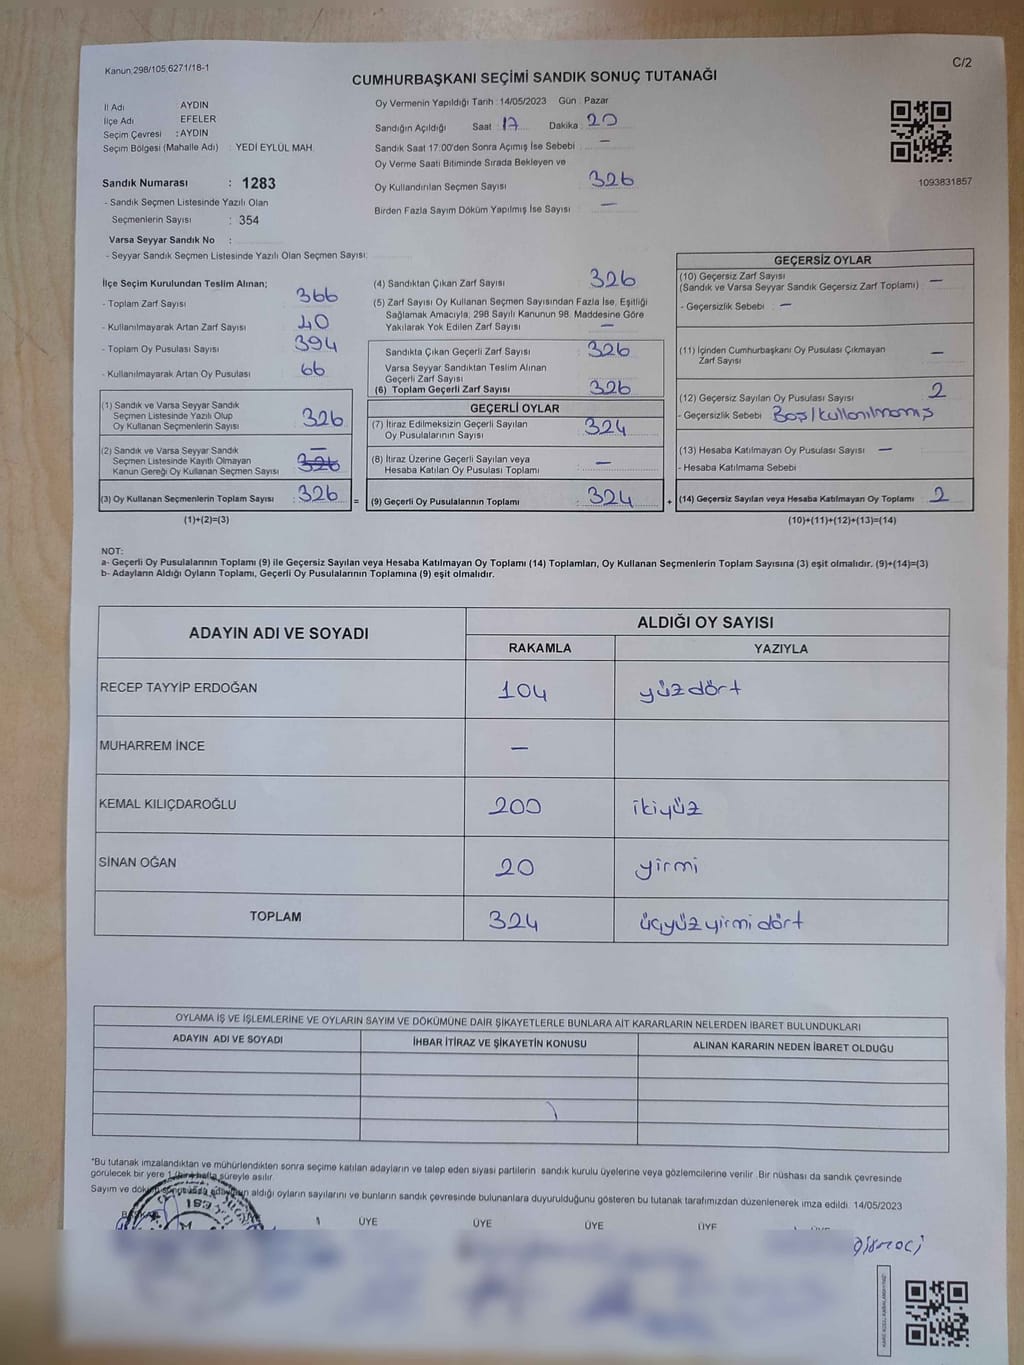 Kanun:298/105,6271/18-1
C/2
CUMHURBAŞKANI SEÇİMİ SANDIK SONUÇ TUTANAĞI
İl Adı AYDIN
İlçe Adı EFELER
Seçim Çevresi : AYDIN
Seçim Bölgesi (Mahalle Adı) : YEDİ EYLÜL MAH.
Sandık Numarası : 1283
- Sandık Seçmen Listesinde Yazılı Olan
Seçmenlerin Sayısı : 354
Varsa Seyyar Sandık No :
- Seyyar Sandık Seçmen Listesinde Yazılı Olan Seçmen Sayısı:
Oy Vermenin Yapıldığı Tarih : 14/05/2023 Gün : Pazar
Sandığın Açıldığı Saat : 17 Dakika : 20
Sandık Saat 17.00'den Sonra Açımış İse Sebebi : —
Oy Verme Saati Bitiminde Sırada Bekleyen ve
Oy Kullandırılan Seçmen Sayısı 326
Birden Fazla Sayım Döküm Yapılmış İse Sayısı : —
1093831857
İlçe Seçim Kurulundan Teslim Alınan;
- Toplam Zarf Sayısı : 366
- Kullanılmayarak Artan Zarf Sayısı : 40
- Toplam Oy Pusulası Sayısı : 394
- Kullanılmayarak Artan Oy Pusulası : 66
(1) Sandık ve Varsa Seyyar Sandık
Seçmen Listesinde Yazılı Olup
Oy Kullanan Seçmenlerin Sayısı : 326
(2) Sandık ve Varsa Seyyar Sandık —
Seçmen Listesinde Kayıtlı Olmayan
Kanun Gereği Oy Kullanan Seçmen Sayısı : 326
(3) Oy Kullanan Seçmenlerin Toplam Sayısı : 326 =
(1)+(2)=(3)
(4) Sandıktan Çıkan Zarf Sayısı : 326
(5) Zarf Sayısı Oy Kullanan Seçmen Sayısından Fazla İse, Eşitliği
Sağlamak Amacıyla; 298 Sayılı Kanunun 98. Maddesine Göre
Yakılarak Yok Edilen Zarf Sayısı : —
Sandıkta Çıkan Geçerli Zarf Sayısı : 326
Varsa Seyyar Sandıktan Teslim Alınan
Geçerli Zarf Sayısı
(6) Toplam Geçerli Zarf Sayısı : 326
GEÇERLİ OYLAR
(7) İtiraz Edilmeksizin Geçerli Sayılan
Oy Pusulalarının Sayısı : 324
(8) İtiraz Üzerine Geçerli Sayılan veya
Hesaba Katılan Oy Pusulası Toplamı : —
(9) Geçerli Oy Pusulalarının Toplamı : 324 +
GEÇERSİZ OYLAR
(10) Geçersiz Zarf Sayısı
(Sandık ve Varsa Seyyar Sandık Geçersiz Zarf Toplamı) : —
- Geçersizlik Sebebi : —
(11) İçinden Cumhurbaşkanı Oy Pusulası Çıkmayan
Zarf Sayısı : —
(12) Geçersiz Sayılan Oy Pusulası Sayısı : 2
- Geçersizlik Sebebi Boş/kullanılmamış
(13) Hesaba Katılmayan Oy Pusulası Sayısı —
- Hesaba Katılmama Sebebi
(14) Geçersiz Sayılan veya Hesaba Katılmayan Oy Toplamı : 2
(10)+(11)+(12)+(13)=(14)
NOT:
a- Geçerli Oy Pusulalarının Toplamı (9) ile Geçersiz Sayılan veya Hesaba Katılmayan Oy Toplamı (14) Toplamları, Oy Kullanan Seçmenlerin Toplam Sayısına (3) eşit olmalıdır. (9)+(14)=(3)
b- Adayların Aldığı Oyların Toplamı, Geçerli Oy Pusulalarının Toplamına (9) eşit olmalıdır.
ADAYIN ADI VE SOYADI
ALDIĞI OY SAYISI
RAKAMLA YAZIYLA
RECEP TAYYİP ERDOĞAN 104 yüzdört
MUHARREM İNCE —
KEMAL KILIÇDAROĞLU 200 ikiyüz
SİNAN OĞAN 20 yirmi
TOPLAM 324 üçyüzyirmidört
OYLAMA İŞ VE İŞLEMLERİNE VE OYLARIN SAYIM VE DÖKÜMÜNE DAİR ŞİKAYETLERLE BUNLARA AİT KARARLARIN NELERDEN İBARET BULUNDUKLARI
ADAYIN ADI VE SOYADI İHBAR İTİRAZ VE ŞİKAYETİN KONUSU ALINAN KARARIN NEDEN İBARET OLDUĞU
*Bu tutanak imzalandıktan ve mühürlendikten sonra seçime katılan adayların ve talep eden siyasi partilerin sandık kurulu üyelerine veya gözlemcilerine verilir. Bir nüshası da sandık çevresinde
görülecek bir yere 1 (bir) hafta süreyle asılır.
Sayım ve döküm aldığı oyların sayılarını ve bunların sandık çevresinde bulunanlara duyurulduğunu gösteren bu tutanak tarafımızdan düzenlenerek imza edildi. 14/05/2023
ÜYE ÜYE ÜYE ÜYE ÜYE